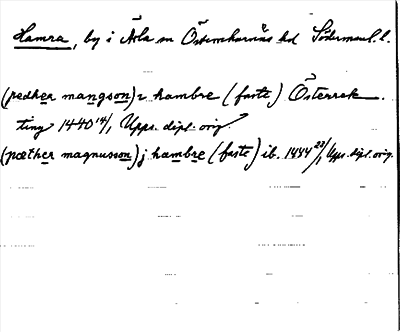 Hamra, by i Ärla sn Österrekarne hd Södermanl. l.
(pedher mangson) i hambre (faste) Österrek.
ting 1440 14/1 Upps. dipl. orig.
(pæther magnusson) j hambre (faste) ib. 1444 23/1 Upps. dipl. orig.